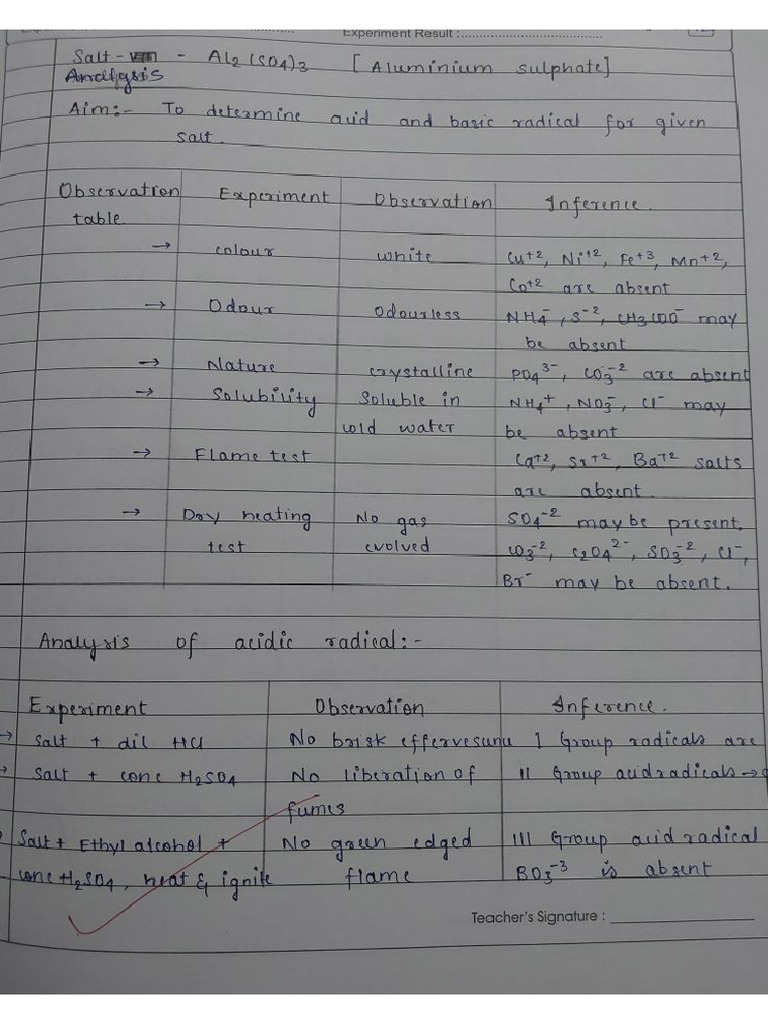 Experiment Result :
Salt - - Al2 (SO4)3 [Aluminium sulphate]
Analysis
Aim:- To determine acid and basic radical for given
salt.
Observation table
Experiment
Observation
Inference.
→ colour
white
Cu+2, Ni+2, Fe+3, Mn+2,
Co+2 are absent
→ Odour
Odourless
NH4-, S-2, CH3COO- may
be absent
→ Nature
crystalline
PO4 3-, CO3-2 are absent
→ Solubility
Soluble in
cold water
NH4+, NO3-, Cl- may
be absent
→ Flame test
Ca+2, Sr+2, Ba+2 salts
are absent.
→ Dry heating
test
No gas
evolved
SO4-2 may be present.
CO3-2, C2O4 2-, SO3-2, Cl-,
Br- may be absent.
Analysis of acidic radical:-
Experiment
Observation
Inference.
→ Salt + dil HCl
No brisk effervesunu
I Group radicals are
→ Salt + conc H2SO4
No liberation of
fumes
II Group acid radicals →
Salt + Ethyl alcohol +
conc H2SO4, heat & ignite
No green edged
flame
III Group acid radical
BO3-3 is absent
Teacher's Signature :